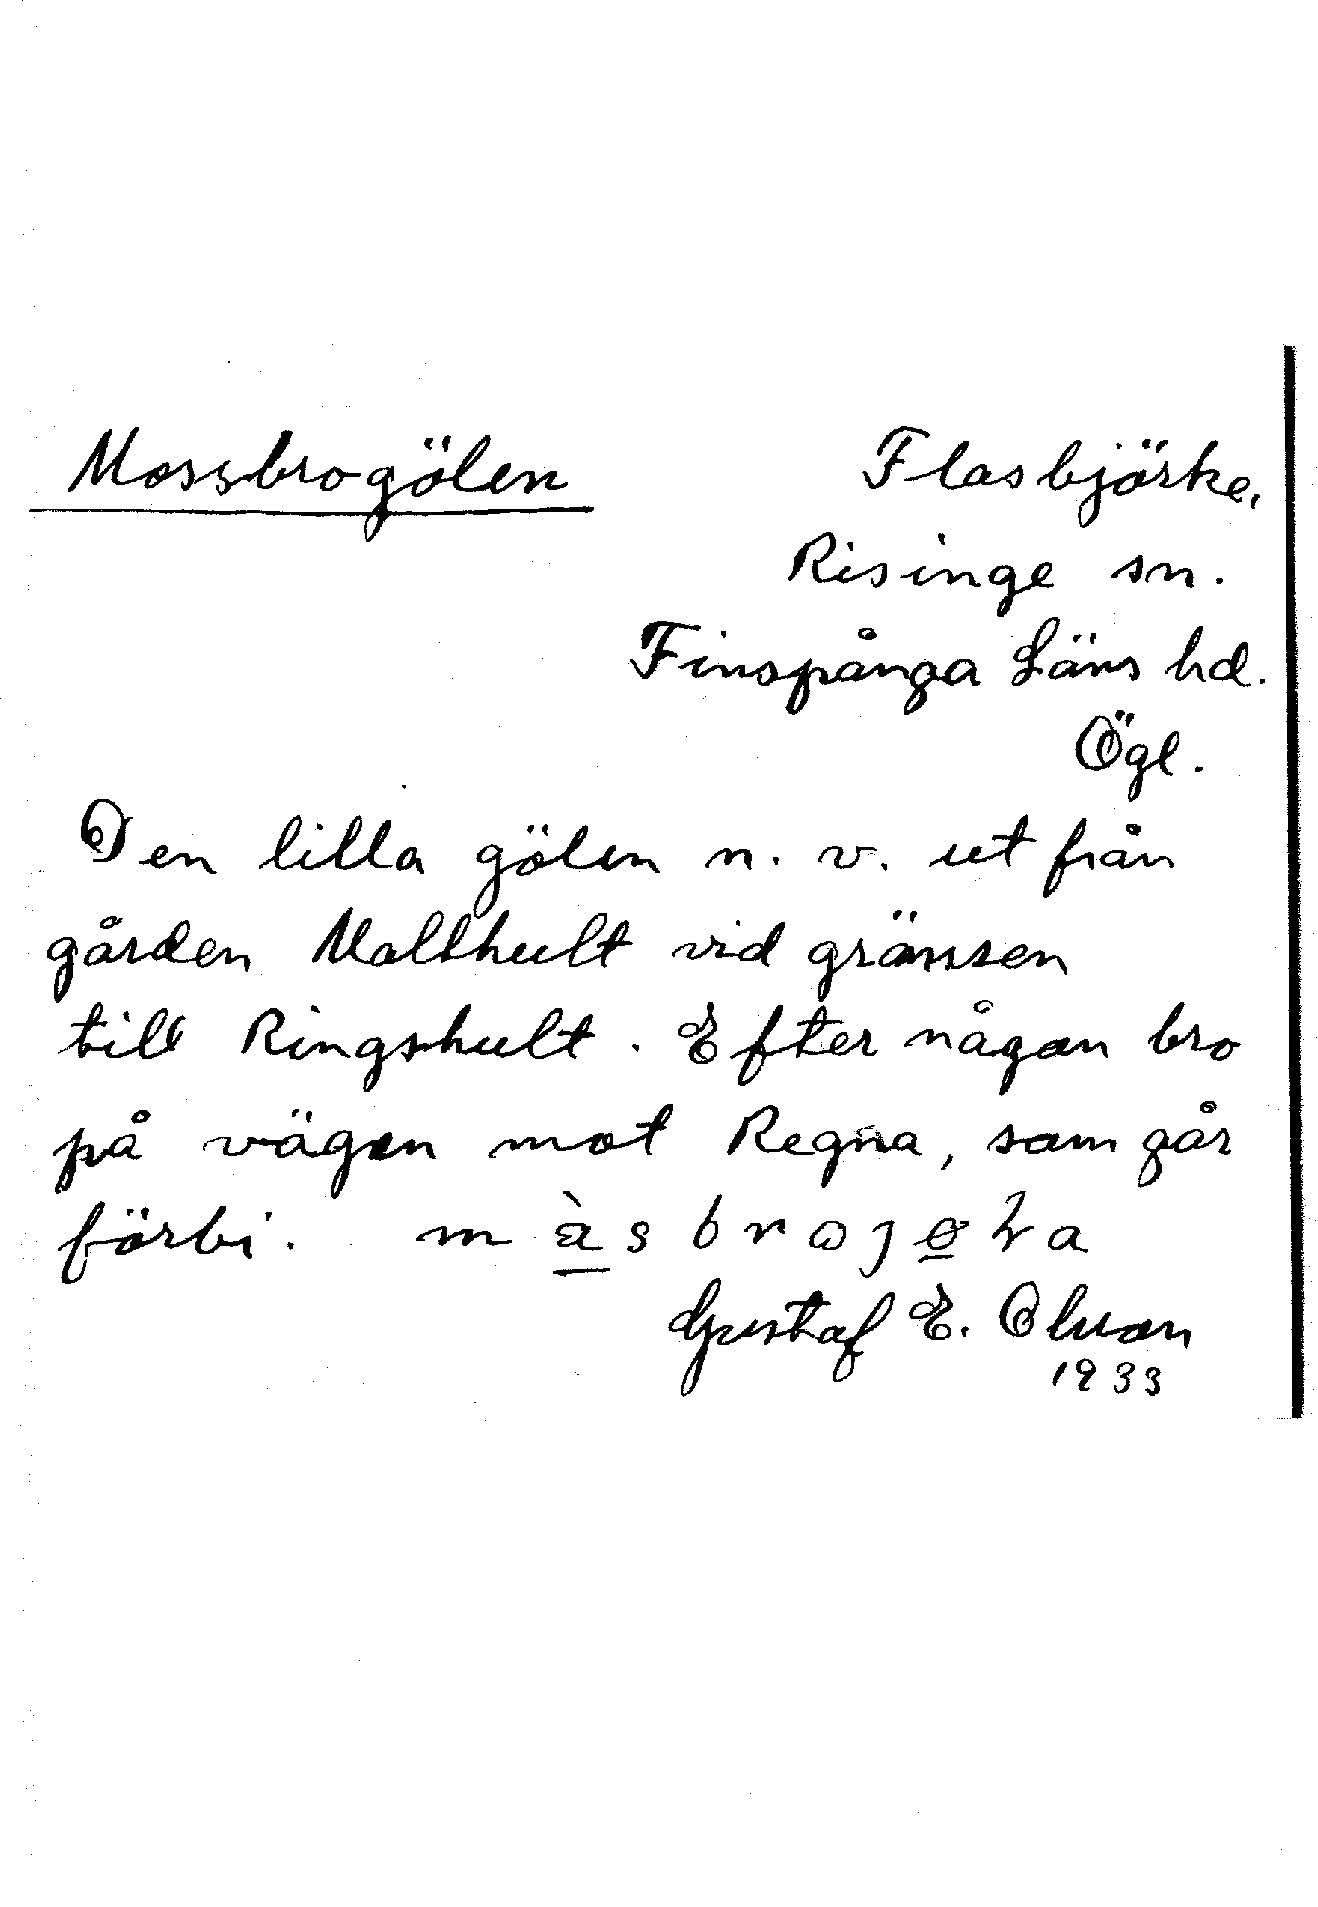 Mossbrogölen
Flasbjörke,
Risinge sn.
Finspånga Läns hd.
Ögl.
Den lilla gölen n. v. ut från
gården Mallhult vid gränsen
till Ringshult. Efter någon bro
på vägen mot Regna, som går
förbi.
Gustaf E. Olvan
1933